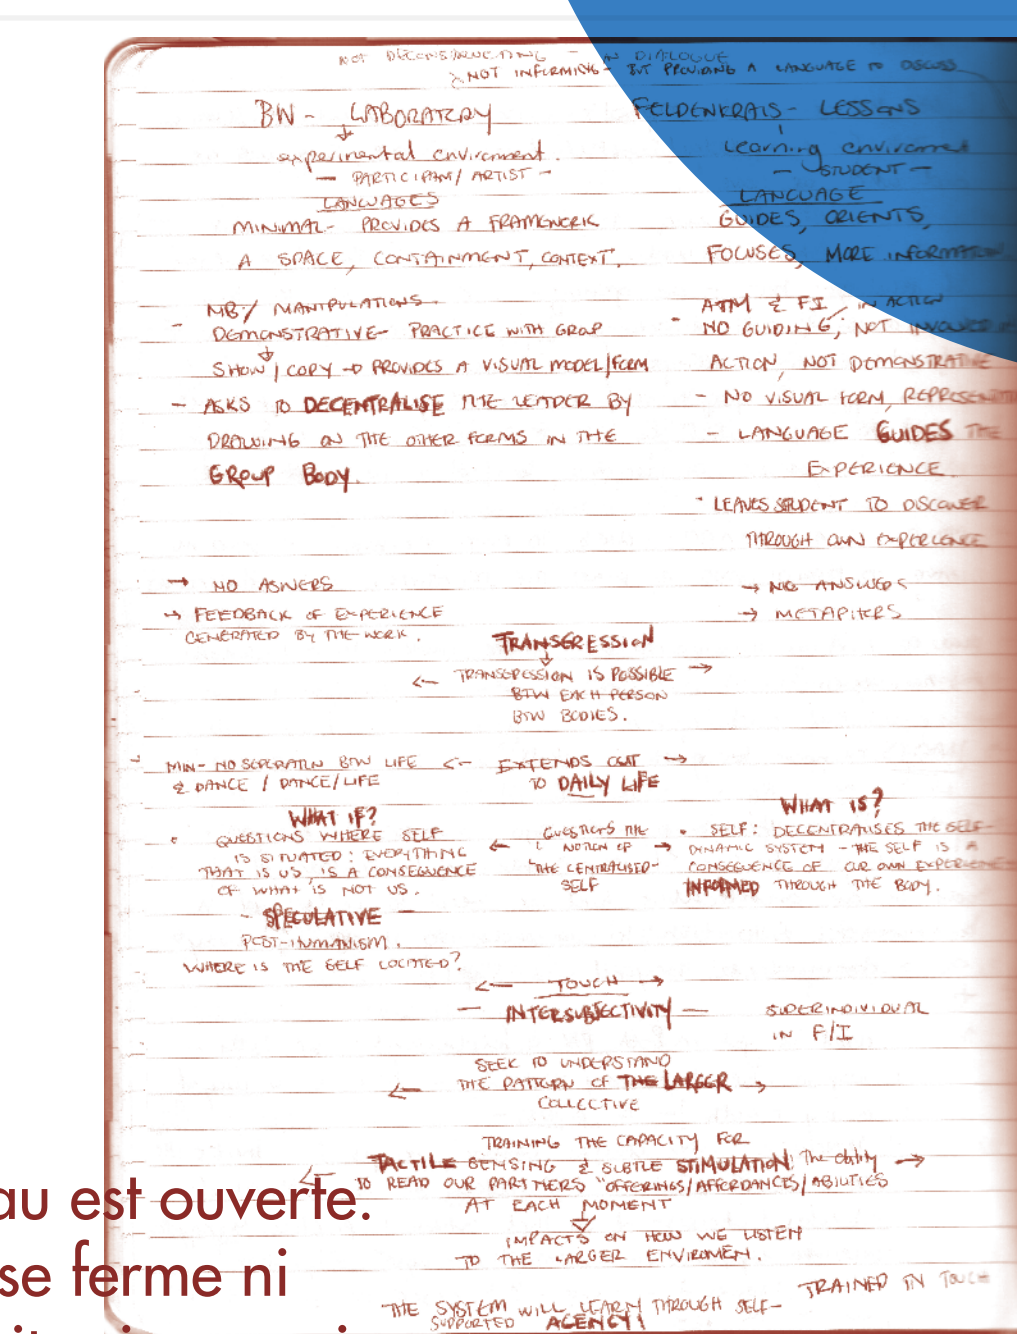 NOT DECONSTRUCTING - IN DIALOGUE
NOT INFORMING - BUT PROVIDING A LANGUAGE TO DISCUSS
BW - LABORATORY
experimental enviroment.
- PARTICIPANT/ ARTIST -
LANGUAGES
MINIMAL - PROVIDES A FRAMEWORK
A SPACE, CONTAINMENT, CONTEXT.
MB/ MANIPULATIONS.
- DEMONSTRATIVE - PRACTICE WITH GROUP
SHOW / COPY → PROVIDES A VISUAL MODEL/FORM
- ASKS TO DECENTRALISE THE LEADER BY
DRAWING ON THE OTHER FORMS IN THE
GROUP BODY.
→ NO ASWERS
→ FEEDBACK OF EXPERIENCE
GENERATED BY THE WORK.
FELDENKRAIS - LESSONS
Learning enviroment
- STUDENT -
LANGUAGE
GUIDES, ORIENTS,
FOCUSES, MORE INFORMATION
ATM & FI / IN ACTION
- NO GUIDING, NOT INVOLVED
ACTION, NOT DEMONSTRATIVE
- NO VISUAL FORM,
- LANGUAGE GUIDES THE
EXPERIENCE
- LEAVES STUDENT TO DISCOVER
THROUGH OWN EXPERIENCE
→ NO ANSWERS
→ METAPHERS
TRANSGRESSION
← TRANSGRESSION IS POSSIBLE →
BTW EACH PERSON
BTW BODIES.
- MIN - NO SEPERATION BTW LIFE
& DANCE / DANCE/LIFE
← EXTENDS OUT →
TO DAILY LIFE
WHAT IF?
• QUESTIONS WHERE SELF
IS SITUATED: EVERYTHING
THAT IS US, IS A CONSEQUENCE
OF WHAT IS NOT US.
- SPECULATIVE -
POST-HUMANISM.
WHERE IS THE SELF LOCATED?
QUESTIONS THE
← NOTION OF →
"THE CENTRALISED-
SELF
WHAT IS?
• SELF: DECENTRALISES THE SELF-
DYNAMIC SYSTEM - THE SELF IS A
CONSEQUENCE OF OUR OWN EXPERIENCES
INFORMED THROUGH THE BODY.
← TOUCH →
- INTERSUBJECTIVITY -
SUPERINDIVIDUAL
IN F/I
SEEK TO UNDERSTAND
← THE PATTERN OF THE LARGER →
COLLECTIVE
TRAINING THE CAPACITY FOR
← TACTILE SENSING & SUBTLE STIMULATION: The ability →
TO READ OUR PARTNERS "OFFERINGS/AFFORDANCES/ABILITIES
AT EACH MOMENT
IMPACTS ON HOW WE LISTEN
TO THE LARGER ENVIROMEN.
TRAINED IN TOUCH
THE SYSTEM WILL LEARN THROUGH SELF-
SUPPORTED AGENCY!
au est ouverte.
se ferme ni